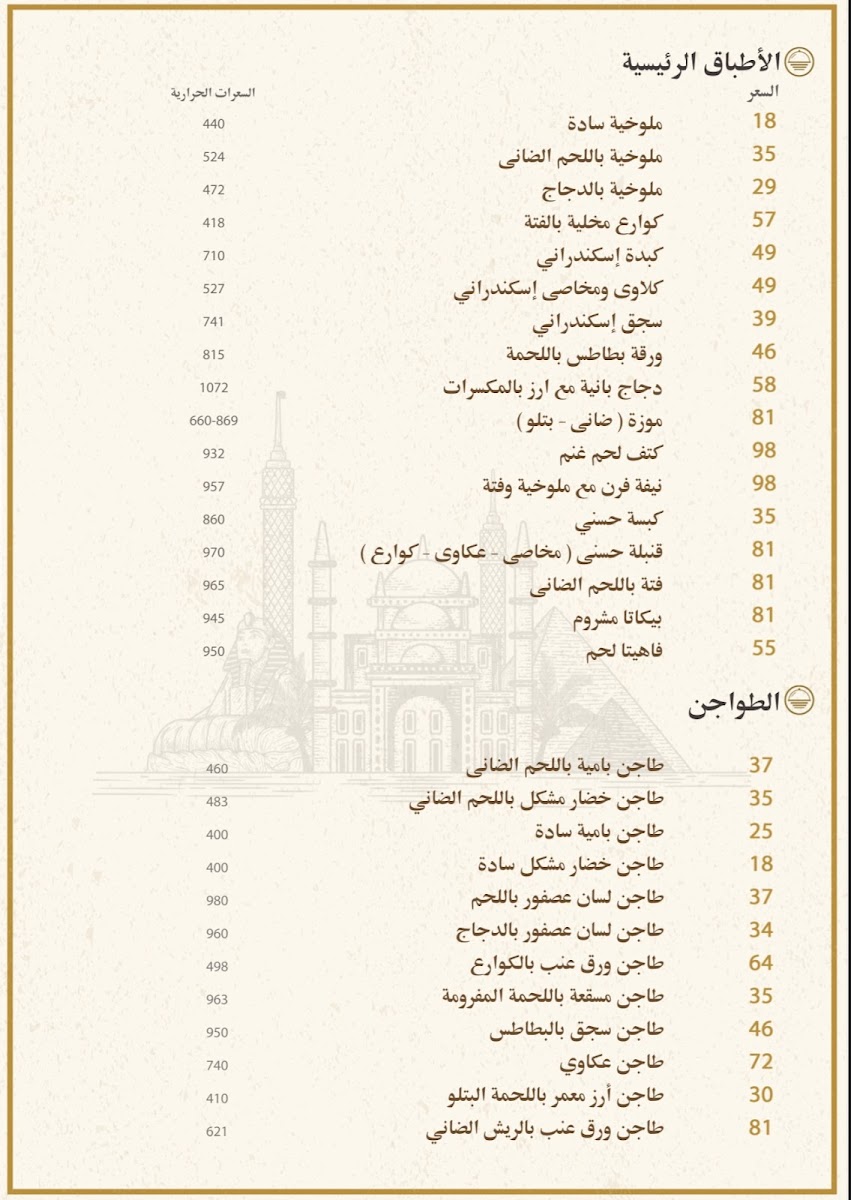 الأطباق الرئيسية
السعر السعرات الحرارية
18 ملوخية سادة 440
35 ملوخية باللحم الضانى 524
29 ملوخية بالدجاج 472
57 كوارع مخلية بالفتة 418
49 كبدة إسكندراني 710
49 كلاوى ومخاصى إسكندراني 527
39 سجق إسكندراني 741
46 ورقة بطاطس باللحمة 815
58 دجاج بانية مع ارز بالمكسرات 1072
81 موزة ( ضانى - بتلو ) 660-869
98 كتف لحم غنم 932
98 نيفة فرن مع ملوخية وفتة 957
35 كبسة حسني 860
81 قنبلة حسنى ( مخاصى - عكاوى - كوارع ) 970
81 فتة باللحم الضانى 965
81 بيكاتا مشروم 945
55 فاهيتا لحم 950
الطواجن
37 طاجن بامية باللحم الضانى 460
35 طاجن خضار مشكل باللحم الضاني 483
25 طاجن بامية سادة 400
18 طاجن خضار مشكل سادة 400
37 طاجن لسان عصفور باللحم 980
34 طاجن لسان عصفور بالدجاج 960
64 طاجن ورق عنب بالكوارع 498
35 طاجن مسقعة باللحمة المفرومة 963
46 طاجن سجق بالبطاطس 950
72 طاجن عكاوي 740
30 طاجن أرز معمر باللحمة البتلو 410
81 طاجن ورق عنب بالريش الضاني 621